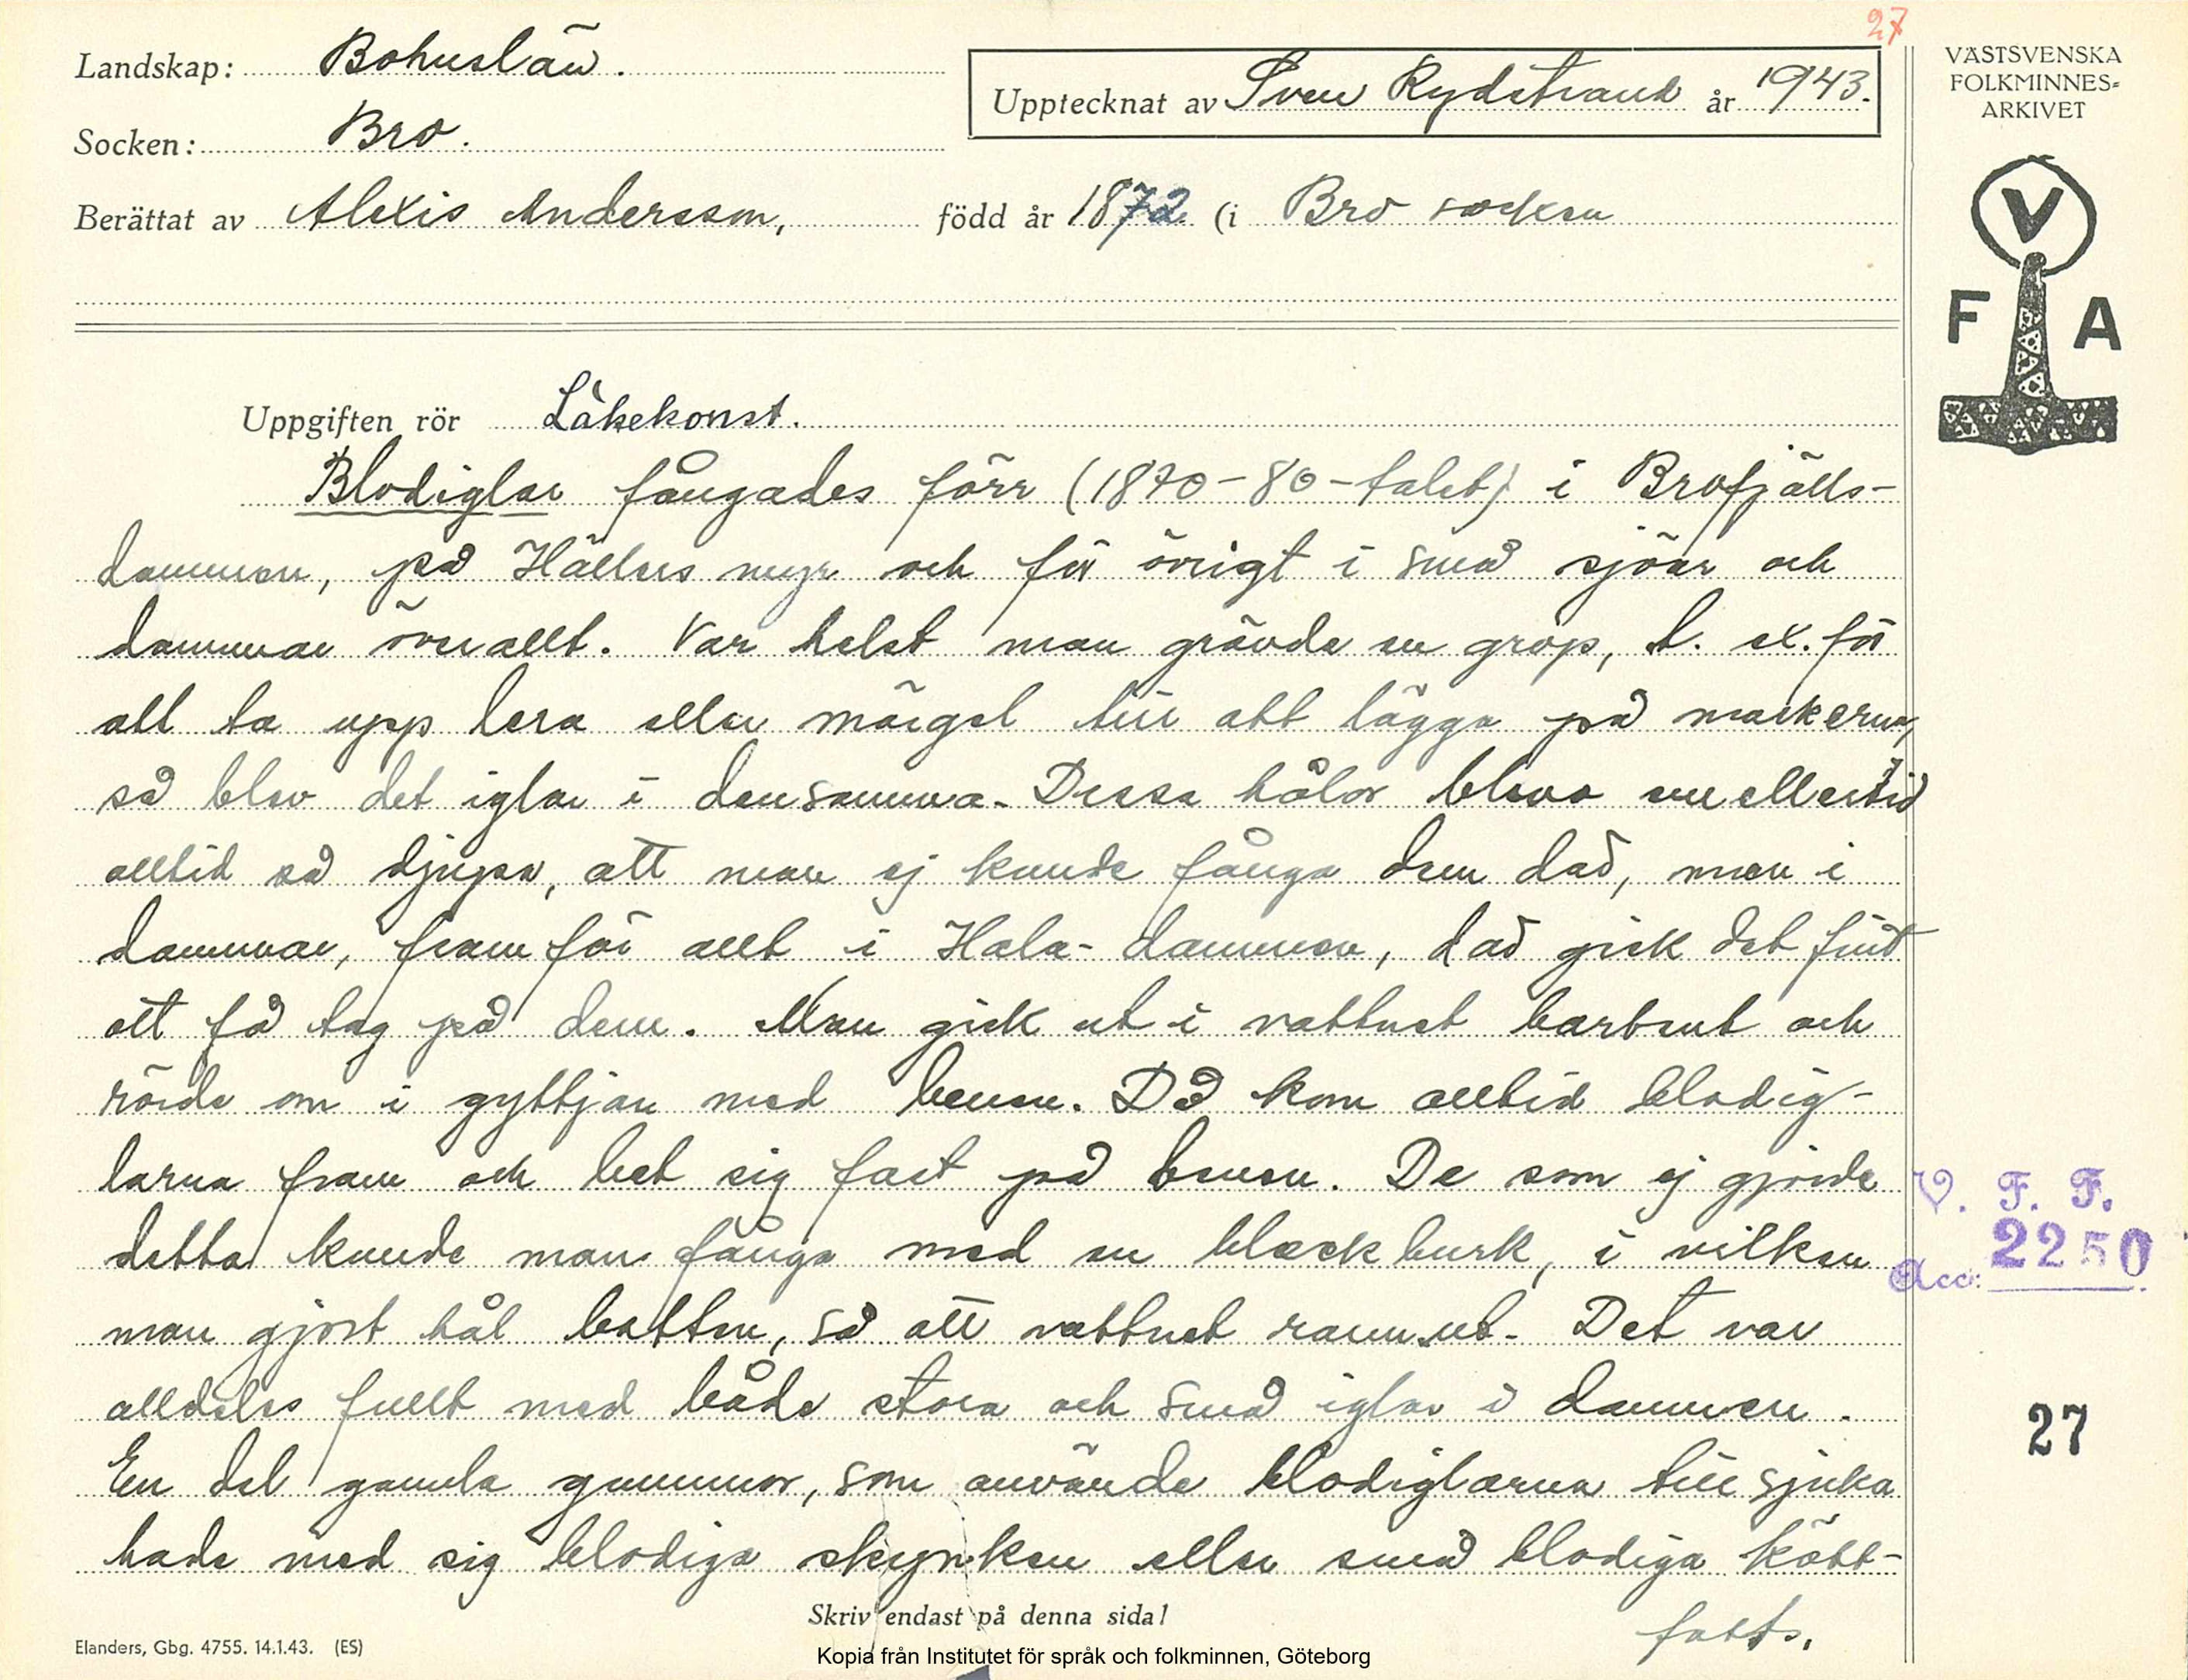 27
Landskap: Bohuslän.
Upptecknat av Sven Rydstrand år 1943.
VÄSTSVENSKA
FOLKMINNES=
ARKIVET
Socken: Bro.
Berättat av Alexis Andersson, född år 1872 (i Bro socken
V
F A
Uppgiften rör Läkekonst.
Blodiglar fångades förr (1870-80-talet) i Brofjälls-
dammen, på Hällers myr och för övrigt i små sjöar och
dammar överallt. Var helst man grävde en grop, t. ex. för
att ta upp lera eller märgel till att lägga på markerna,
så blev det iglar i densamma. Dessa hålor blevo emellertid
alltid så djupa, att man ej kunde fånga dem där, men i
dammar, framför allt i Hala-dammen, där gick det fint
att få tag på dem. Man gick ut i vattnet barbent och
rörde om i gyttjan med benen. Då kom alltid blodig-
larna fram och bet sig fast på benen. De som ej gjorde
detta kunde man fånga med en bleckburk, i vilken
man gjort hål botten, så att vattnet rann ut. Det var
alldeles fullt med både stora och små iglar i dammen.
En del gamla gummor, som använde blodiglarna till sjuka
hade med sig blodiga skynken eller små blodiga kött-
forts.
V. F. F.
Acc: 2250
27
Skriv endast på denna sida!
Elanders, Gbg. 4755. 14.1.43. (ES)
Kopia från Institutet för språk och folkminnen, Göteborg